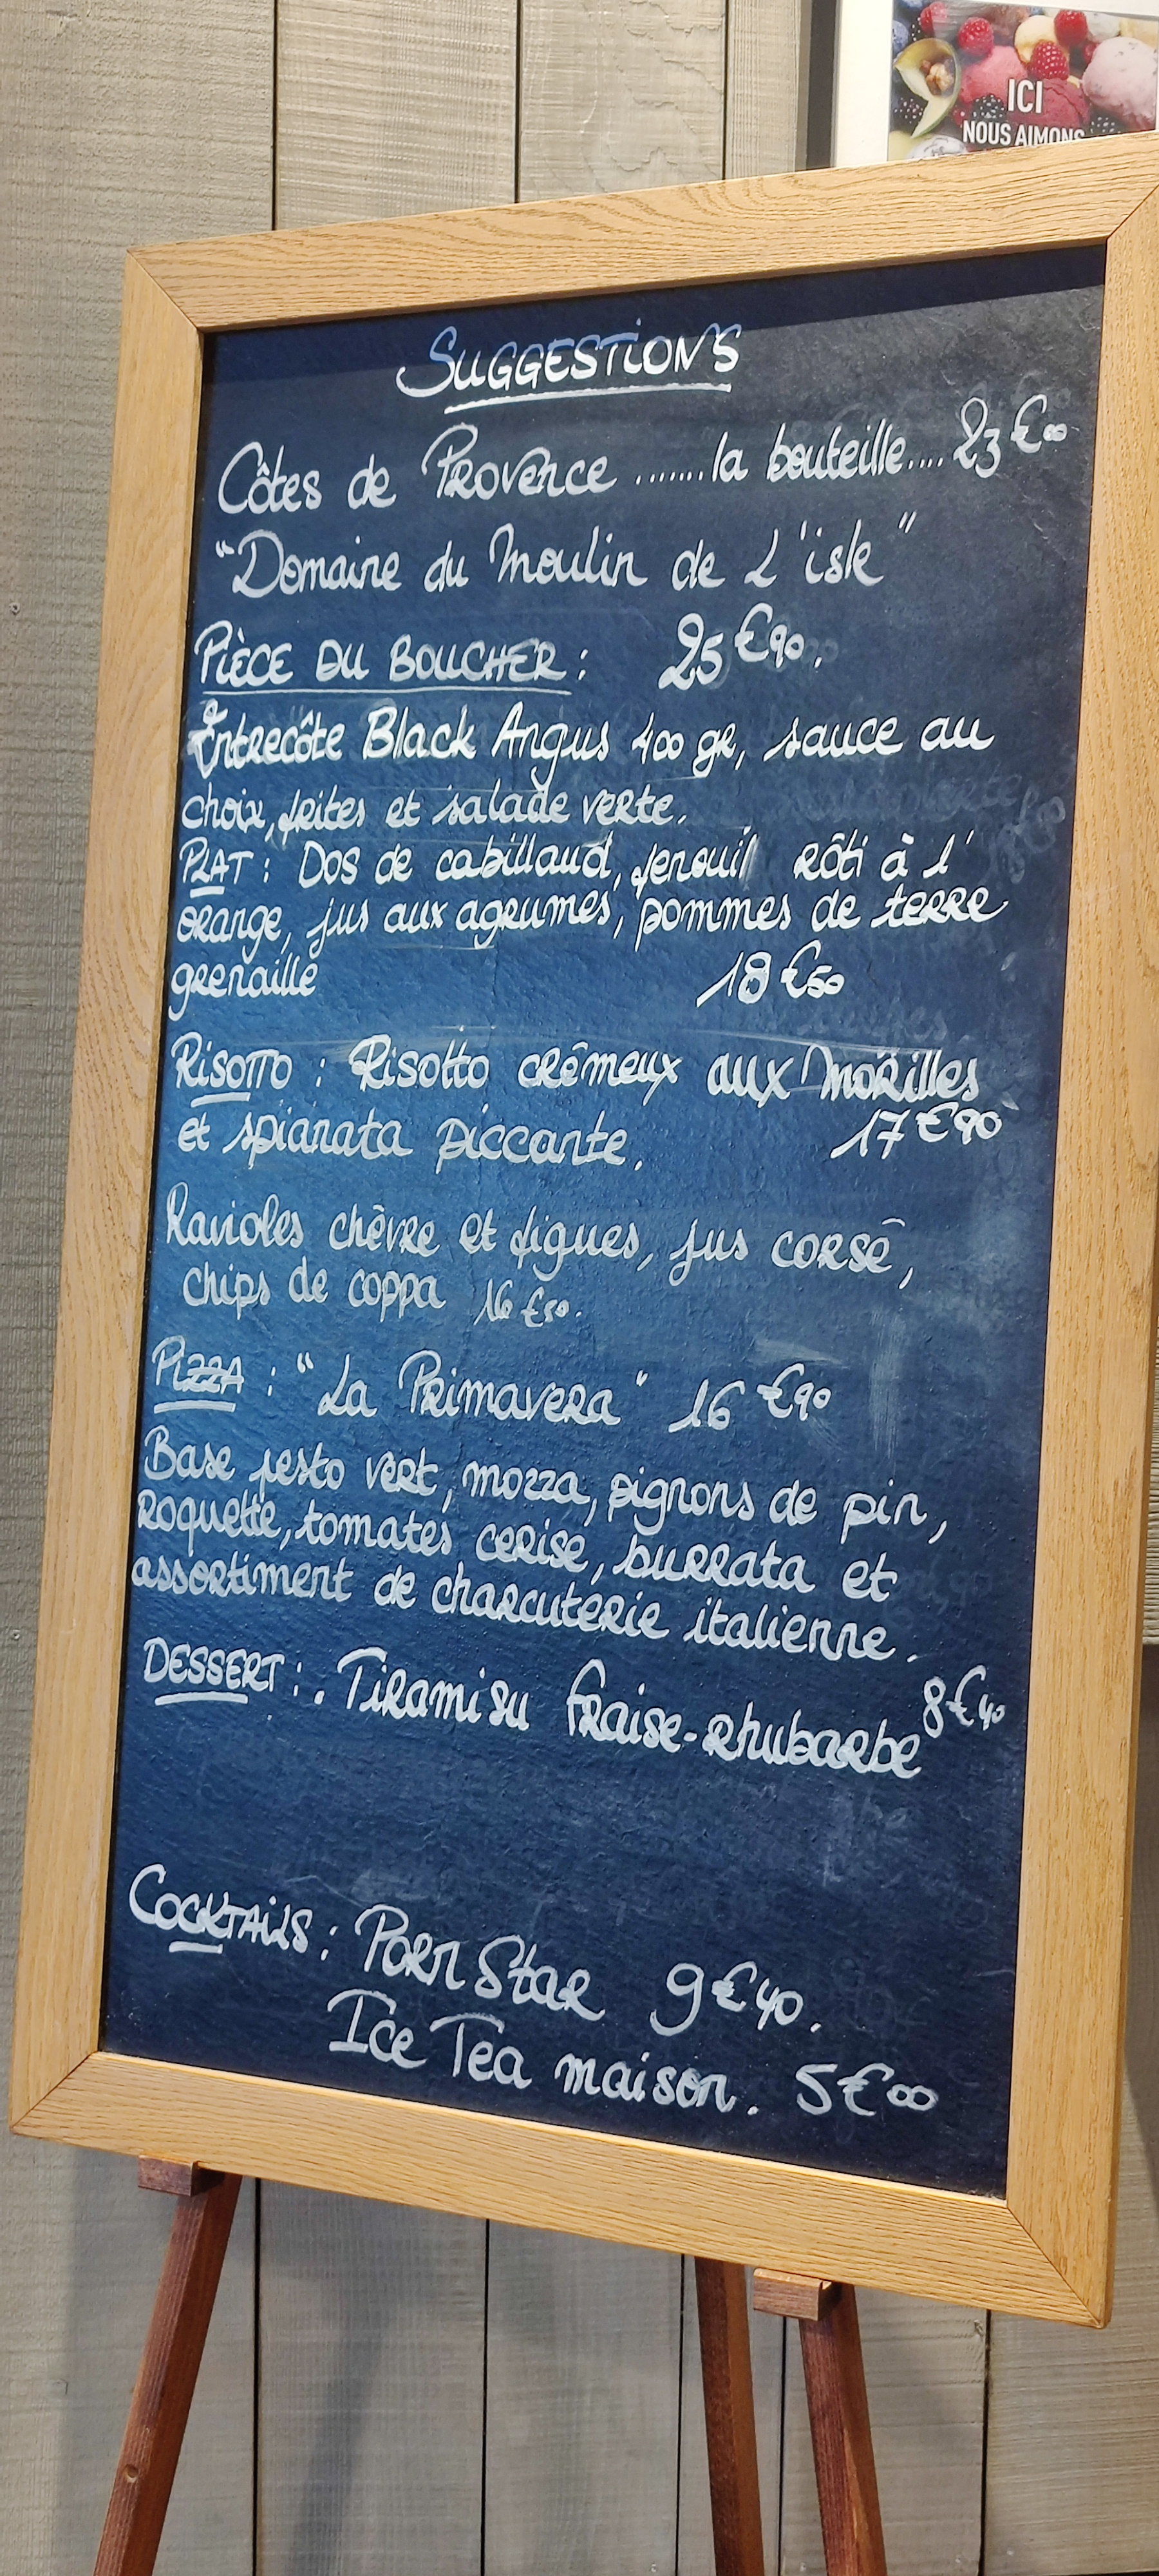 ICI
NOUS AIMONS
SUGGESTIONS
Côtes de Provence .......la bouteille.... 23€00
"Domaine du Moulin de L'isle"
PIÈCE DU BOUCHER : 25€90.
Entrecôte Black Angus 400 gr, sauce au
choix, frites et salade verte.
PLAT : Dos de cabillaud, fenouil rôti à l'
orange, jus aux agrumes, pommes de terre
grenaille 18€50
RISOTTO : Risotto crêmeux aux morilles
et spianata piccante. 17€90
Ravioles chèvre et figues, jus corsé,
chips de coppa 16€50.
PIZZA : "La Primavera" 16€90
Base pesto vert, mozza, pignons de pin,
Roquette, tomates cerise, burrata et
assortiment de charcuterie italienne.
DESSERT : . Tiramisu fraise-rhubarbe 8€40
COCKTAILS : Porn Star 9€40.
Ice Tea maison. 5€00